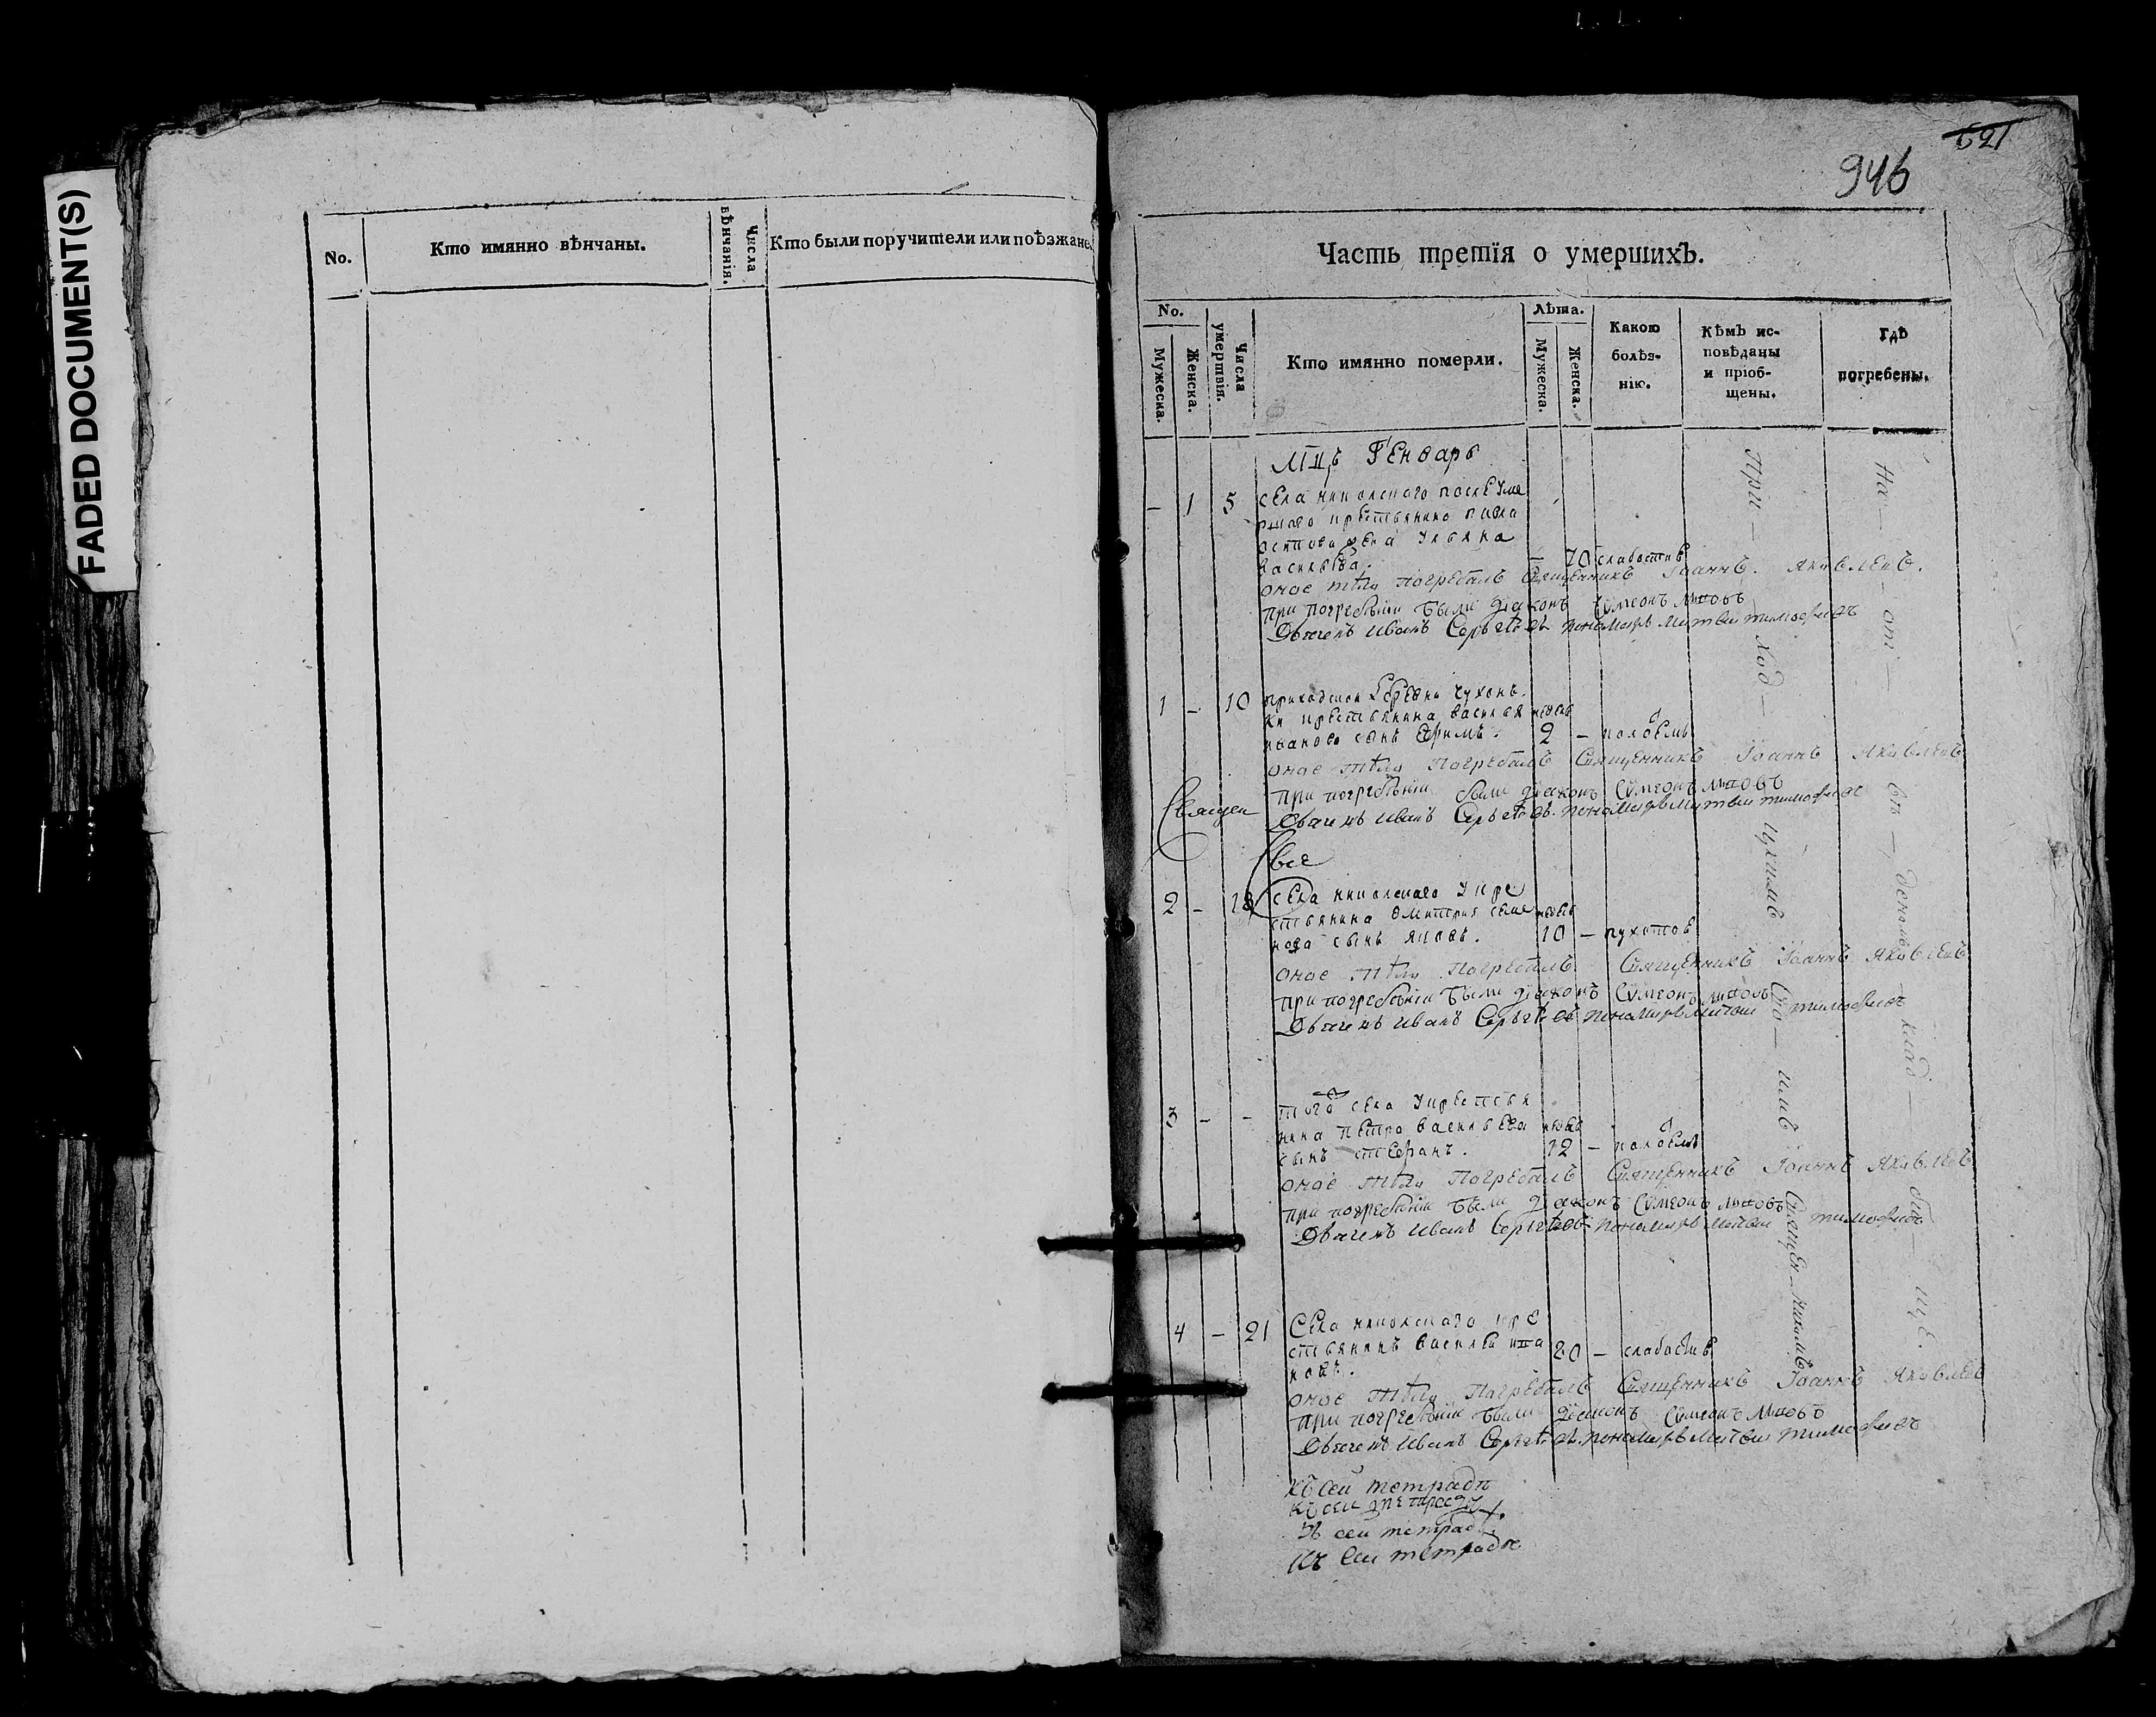 FADED DOCUMENT(S)
No.
Кто имянно вѣнчаны.
Числа вѣнчанія.
Кто были поручители или поѣзжане.
521
946
Часть третія о умершихъ.
No.
Мужеска.
Женска.
Числа умертвія.
Кто имянно померли.
Лѣта.
Мужеска.
Женска.
Какою болѣзнію.
Кѣмъ исповѣданы и пріобщены.
Гдѣ погребены.
Мцъ Генварь
– 1 5 села никольского после уме
ршаго крестьянина
жена Ульяна
васильева. – 70 слабостию
оное тѣло погребалъ Священникъ Іоаннъ Яковлевъ.
при погребѣніи были діаконъ Сѵмеонъ
Дьячекъ Иванъ Сергѣевъ пономарь матвеи тимофеевъ
1 – 10 приходской деревни чухон
ки крестьянина василья недель
иванова сынъ Ефимъ. 2 –
оное тѣло погребалъ Священникъ Іоаннъ Яковлевъ
при погребѣніи были діаконъ Сѵмеонъ
Священ
Дьячекъ Иванъ Сергѣевъ пономарь матвеи тимофеевъ
Свя
2 – 18 села никольскаго у кре
стьянина дмитрия семе недель
нова сынъ яковъ. 10 –
оное тѣло погребалъ Священникъ Іоаннъ Яковлевъ
при погребѣніи были діаконъ Сѵмеонъ
Дьячекъ Иванъ Сергѣевъ пономарь матвеи тимофеевъ
3 – – того села у крестья
нина петра васильева недель
сынъ стефанъ. 12 –
оное тѣло погребалъ Священникъ Іоаннъ Яковлевъ
при погребѣніи были діаконъ Сѵмеонъ
Дьячекъ Иванъ Сергѣевъ пономарь матвеи тимофеевъ
4 – 21 Села никольскаго кре
стьянинъ василеи ива
новъ. 20 – слабостию
оное тѣло погребалъ Священникъ Іоаннъ Яковлевъ
при погребѣніи были діаконъ Сѵмеонъ
Дьячекъ Иванъ Сергѣевъ пономарь матвеи тимофеевъ
При – ход –
На – от –
клад – би – ще.
Къ сеи тетради
Къ сеи тетради
Къ сеи тетради
Къ сеи тетради